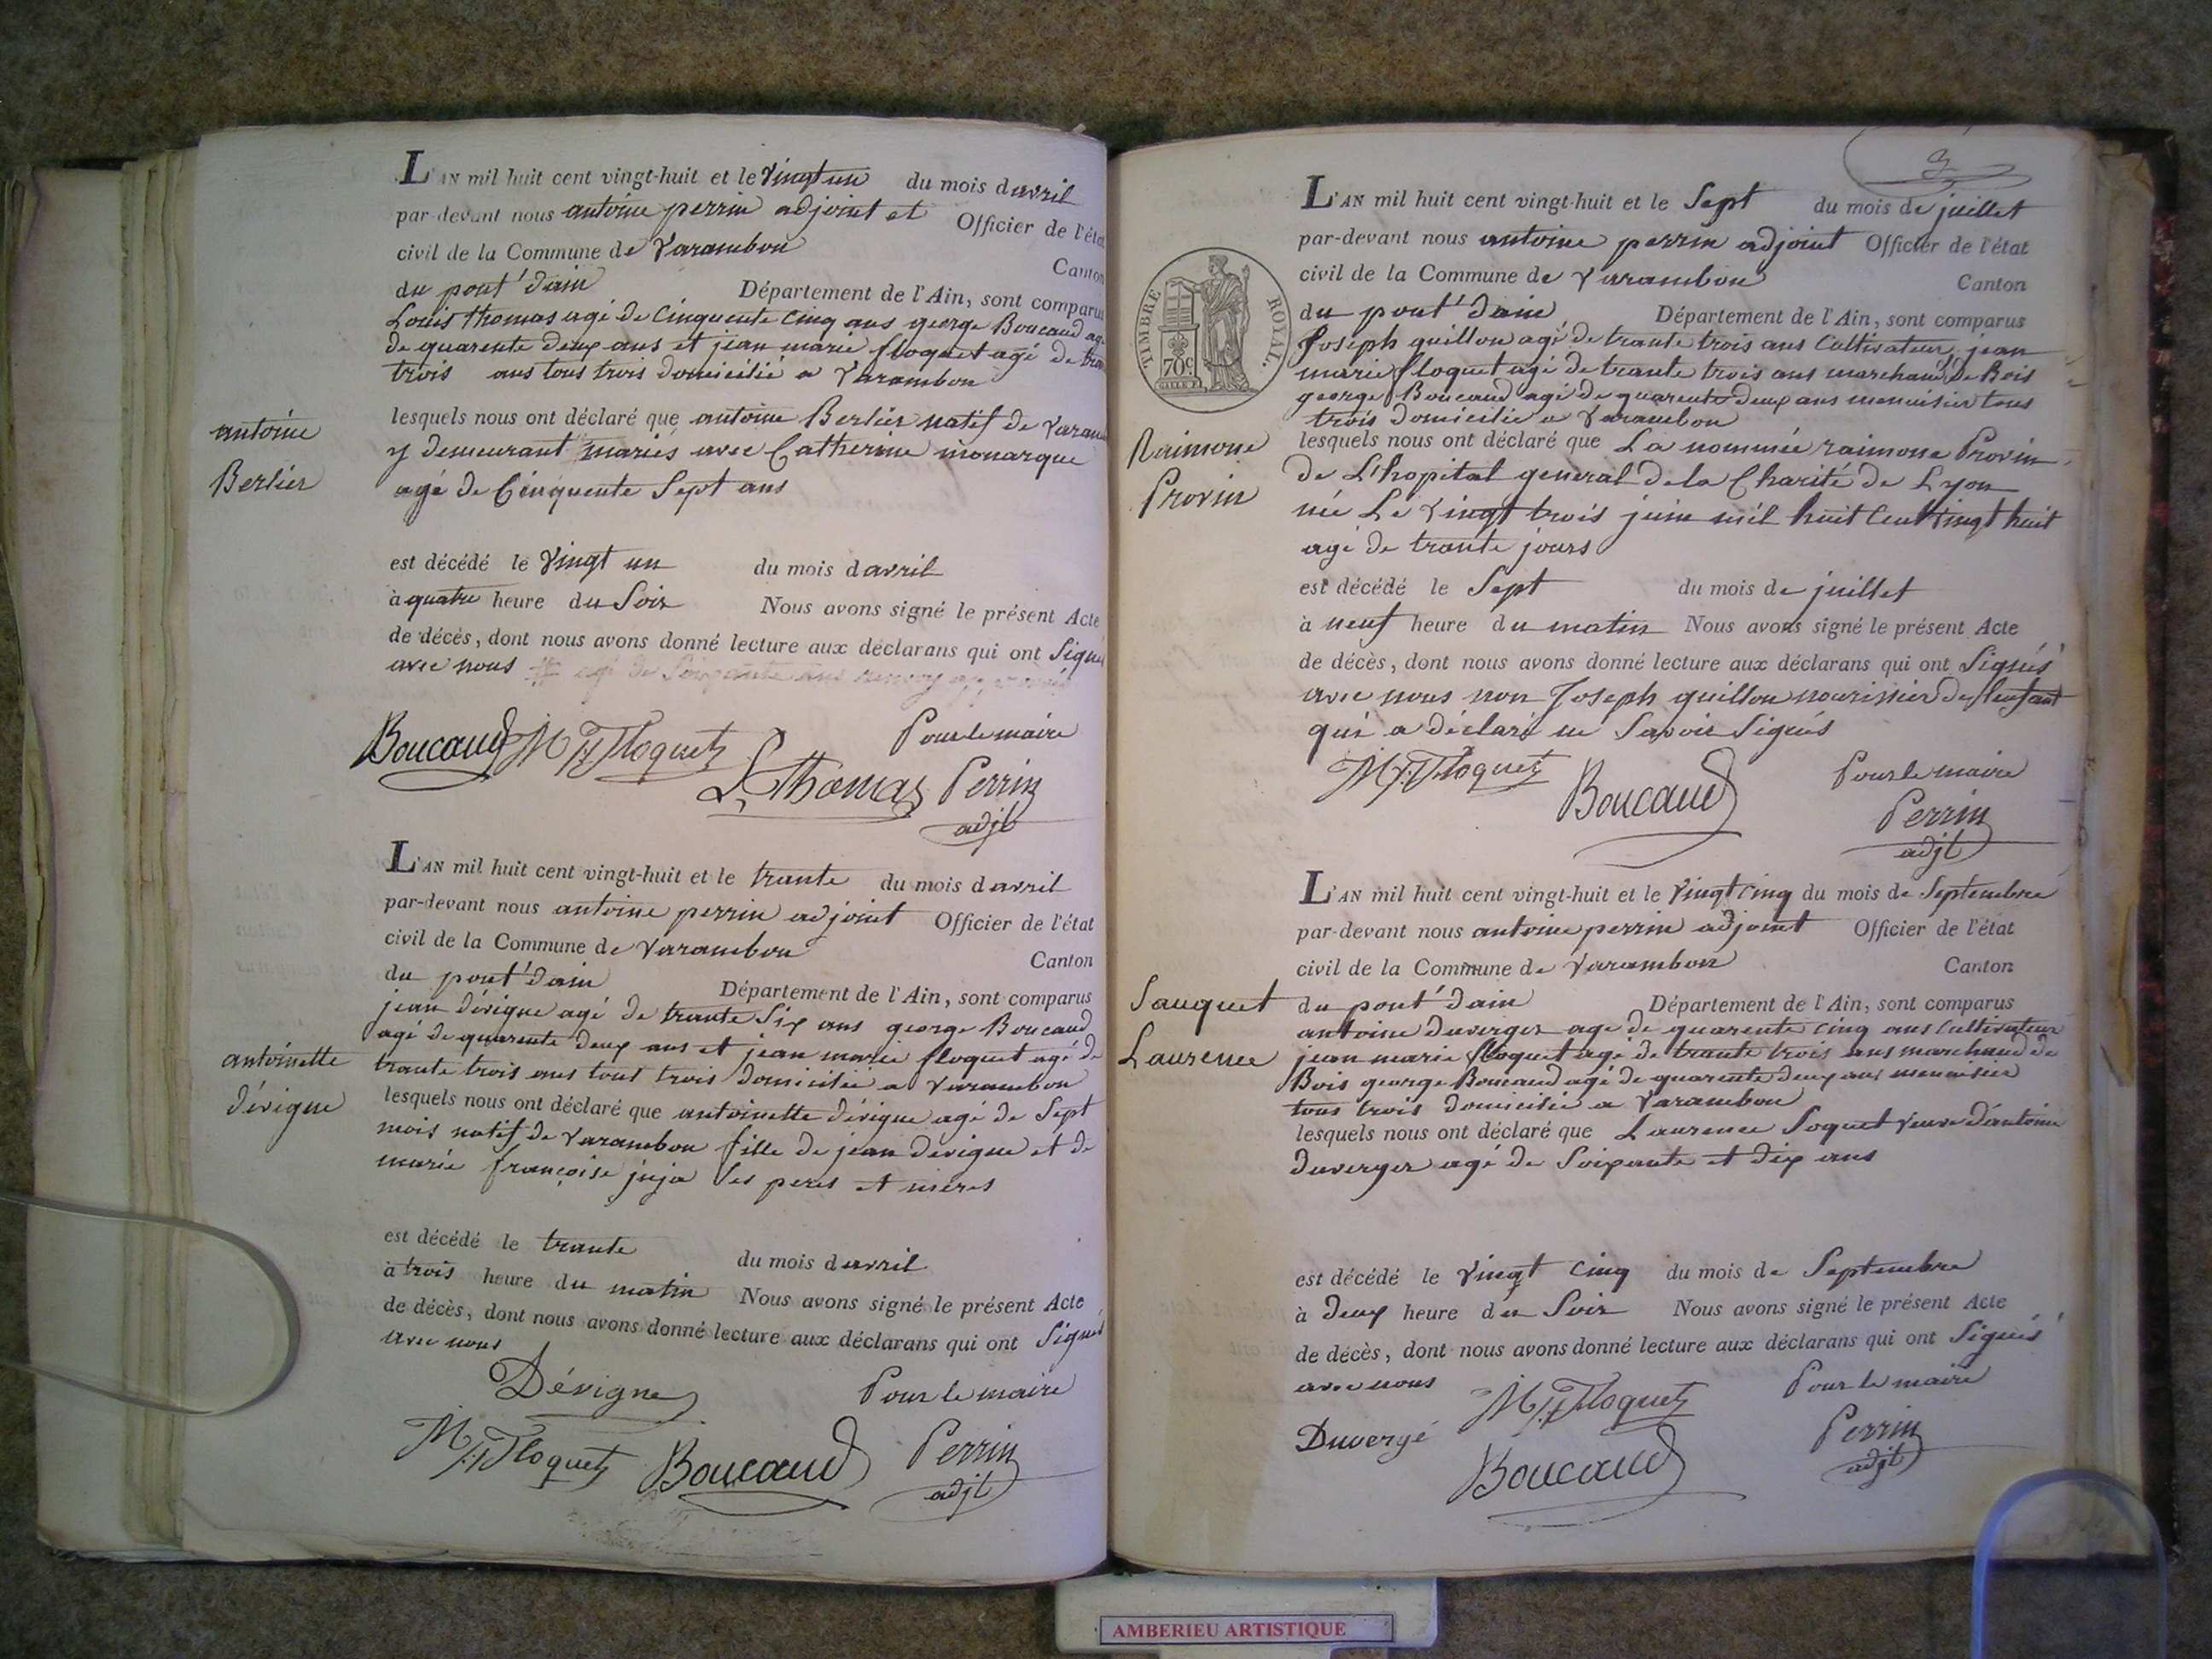 L'AN mil huit cent vingt-huit et le vingt un du mois davril
par-devant nous antoine perrin adjoint et Officier de l'état
civil de la Commune de Varambon
Canton
du pont d'ain Département de l'Ain, sont comparus
Louis thomas agé de Cinquente cinq ans george Boucaud agé
de quarente deux ans et jean marie floquet agé de tran
trois ans tous trois domicilié a Varambon
antoine
Berlier
lesquels nous ont déclaré que antoine Berlier natif de Varam
y demeurant mariés avec Catherine monarque
agé de Cinquente Sept ans
est décédé le vingt un du mois davril
à quatre heure du Soir Nous avons signé le présent Acte
de décès, dont nous avons donné lecture aux déclarans qui ont Signé
avec nous
Boucaud M Floquet Pour le maire
L. Thomas Perrin
adjt
L'AN mil huit cent vingt-huit et le trante du mois davril
par-devant nous antoine perrin adjoint Officier de l'état
civil de la Commune de Varambon
Canton
du pont d'ain Département de l'Ain, sont comparus
jean dévigne agé de trante Six ans george Boucaud
agé de quarente deux ans et jean marie floquet agé de
trante trois ans tout trois domicilié a Varambon
antoinette
dévigne
lesquels nous ont déclaré que antoinette dévigne agé de Sept
mois natif de Varambon fille de jean devigne et de
marie françoise juja Ses peres et mères
est décédé le trante du mois davril
à trois heure du matin Nous avons signé le présent Acte
de décès, dont nous avons donné lecture aux déclarans qui ont Signés
avec nous
Dévigne Pour le maire
M Floquet Boucaud Perrin
adjt
3
L'AN mil huit cent vingt-huit et le Sept du mois de juillet
par-devant nous antoine perrin adjoint Officier de l'état
civil de la Commune de Varambon
Canton
TIMBRE ROYAL.
70c
du pont d'ain Département de l'Ain, sont comparus
Joseph guillon agé de trante trois ans Cultivateur, jean
marie floquet agé de trante trois ans marchand de Bois
george Boucaud agé de quarente deux ans menuisier tous
trois domicilié a Varambon
Raimone
Provin
lesquels nous ont déclaré que La nommée raimone Provin
de L'hopital general de la Charité de Lyon
née Le vingt trois juin mil huit Cent vingt huit
agé de trante jours
est décédé le Sept du mois de juillet
à neuf heure du matin Nous avons signé le présent Acte
de décès, dont nous avons donné lecture aux déclarans qui ont Signés
avec nous non Joseph guillon nourissier de lenfant
qui a déclaré ne Savoir Signés
M Floquet Boucaud Pour le maire
Perrin
adjt
L'AN mil huit cent vingt-huit et le vingt cinq du mois de Septembre
par-devant nous antoine perrin adjoint Officier de l'état
civil de la Commune de Varambon
Canton
Sauquet
Laurence
du pont d'ain Département de l'Ain, sont comparus
antoine duverger age de quarente cinq ans Cultivateur
jean marie floquet agé de trante trois ans marchand de
Bois george Boucaud agé de quarente deux ans menuisier
tous trois domicilié a Varambon
lesquels nous ont déclaré que Laurence Soquet veuve d'antoine
duverger agé de Soixante et dix ans
est décédé le vingt cinq du mois de Septembre
à deux heure du Soir Nous avons signé le présent Acte
de décès, dont nous avons donné lecture aux déclarans qui ont Signés
avec nous M Floquet Pour le maire
Duvergé Perrin
Boucaud adjt
AMBERIEU ARTISTIQUE